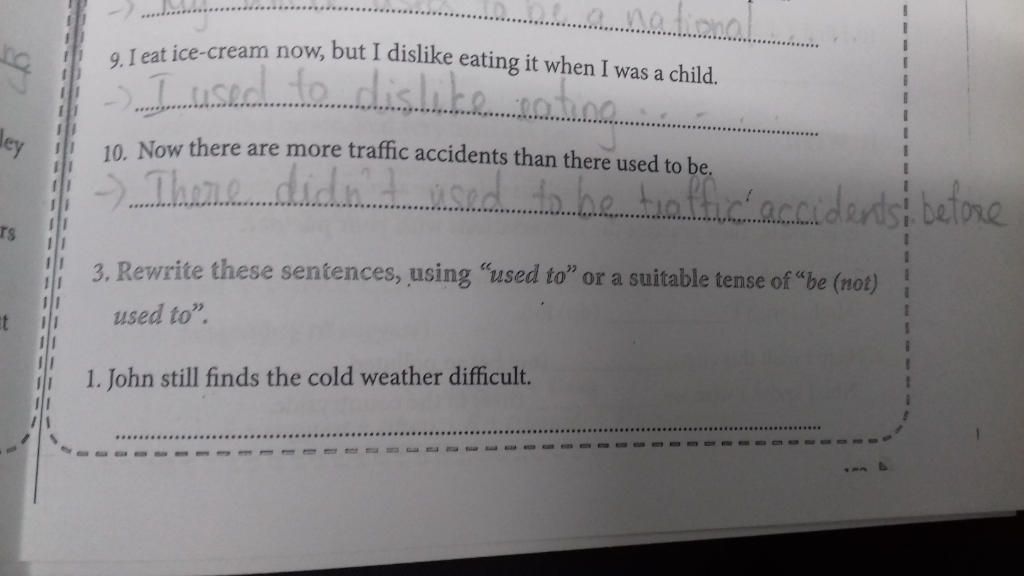 -> My used to be a national
9. I eat ice-cream now, but I dislike eating it when I was a child.
-> I used to dislike eating
10. Now there are more traffic accidents than there used to be.
-> There didn't used to be traffic accidents before
3. Rewrite these sentences, using “used to” or a suitable tense of “be (not)
used to”.
1. John still finds the cold weather difficult.
ley
rs
t